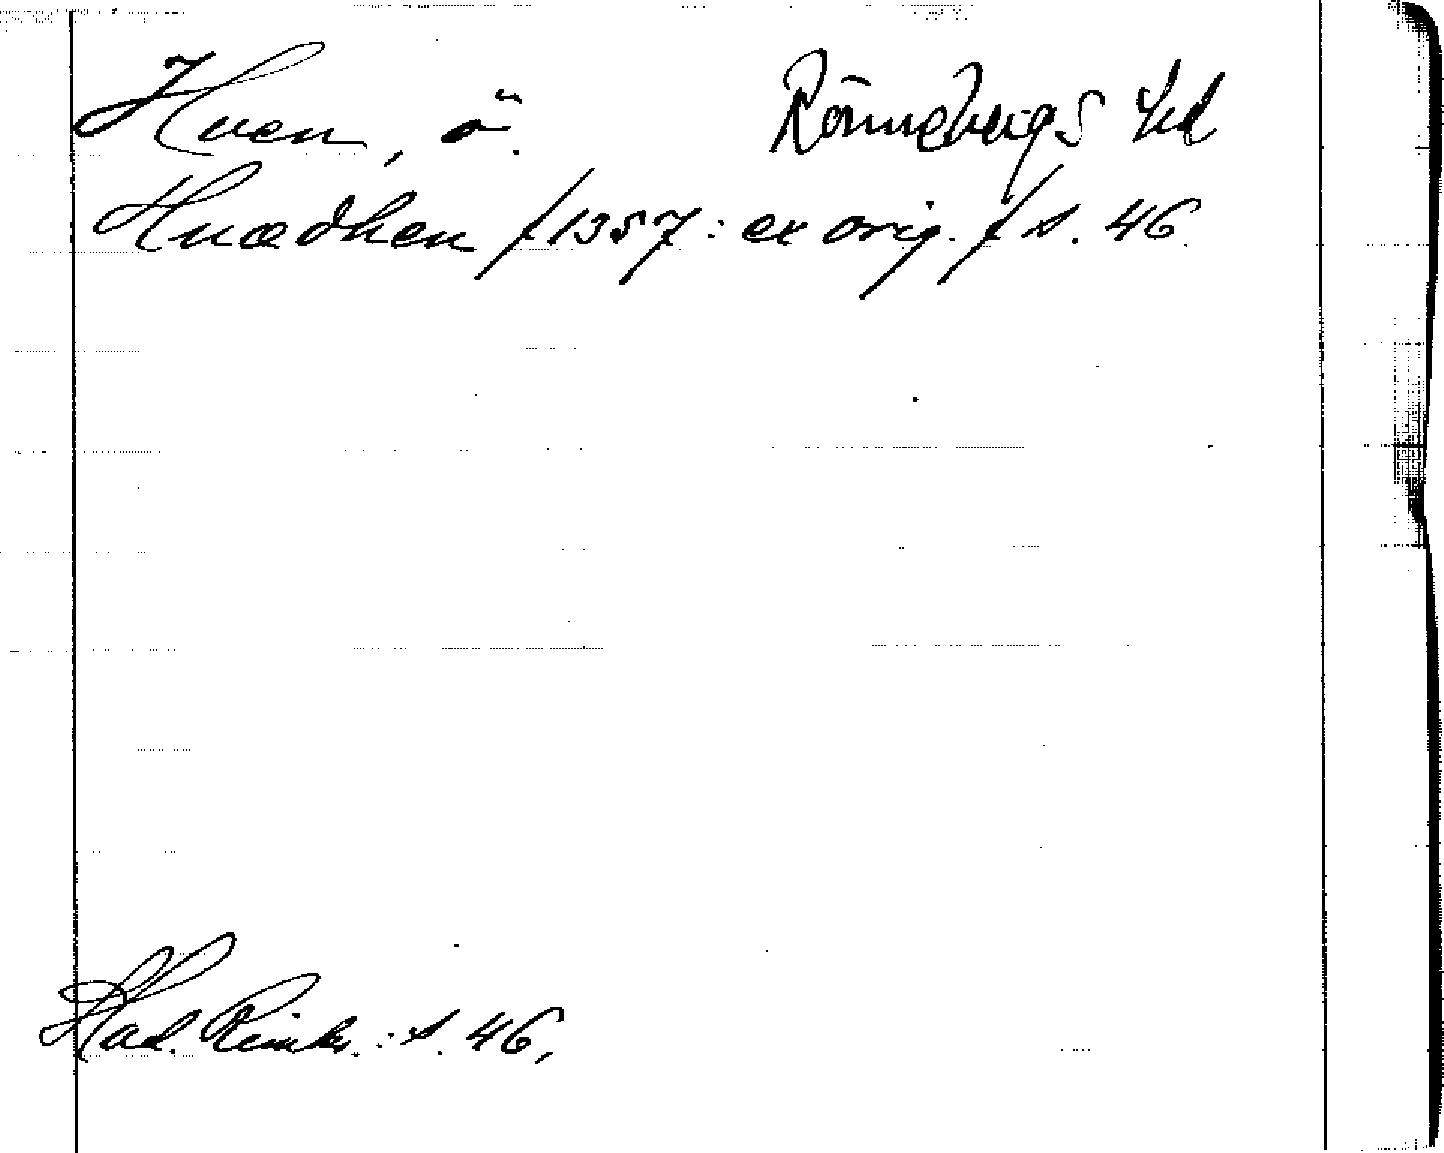 Hven, ö. Rönnebergs hd
Hwædhen /1357: ex orig./ s. 46.
Had. : s. 46.